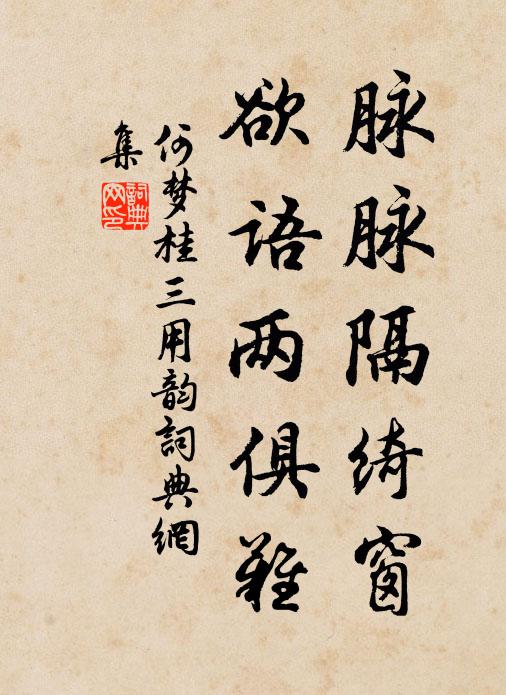 脉脉隔绮窗
欲语两俱难
何梦桂三用韵詞典網
集
詞典網印